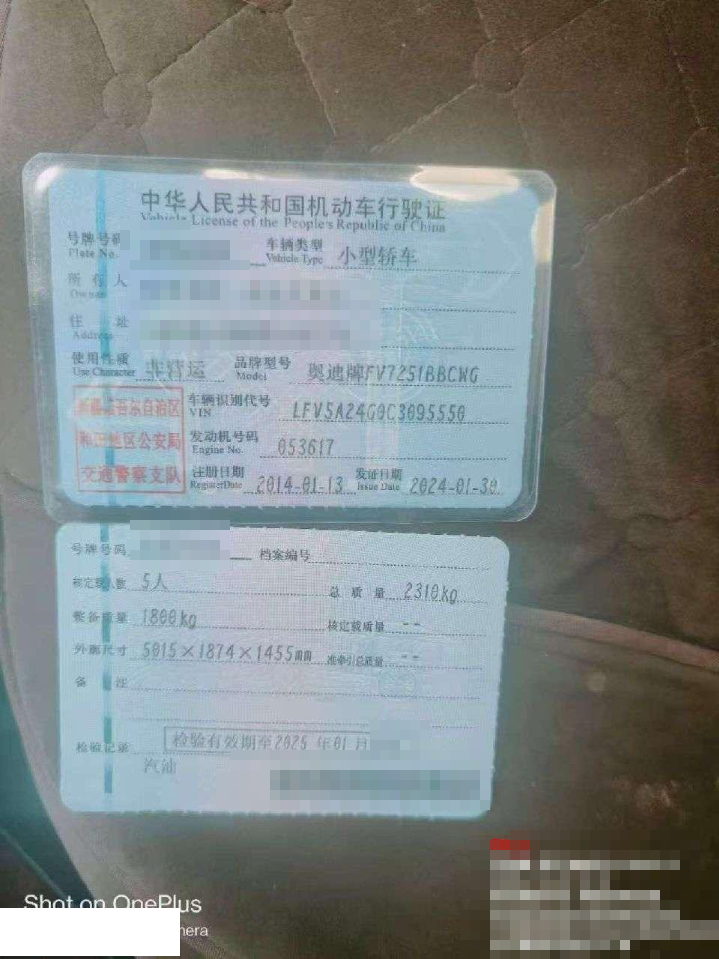 中华人民共和国机动车行驶证
Vehicle License of the People's Republic of China
号牌号码 车辆类型 小型轿车
Plate No. Vehicle Type
所有人
Owner
住址
Address
使用性质 非营运 品牌型号 奥迪牌FV7251BBCWG
Use Character Model
新疆维吾尔自治区
和田地区公安局
交通警察支队
车辆识别代号 LFV5A24G0C3095550
VIN
发动机号码 053617
Engine No.
注册日期 2014-01-13 发证日期 2024-01-30
Register Date Issue Date
号牌号码 档案编号
核定载人数 5人 总质量 2310kg
整备质量 1800kg 核定载质量 --
外廓尺寸 5015×1874×1455mm 准牵引总质量 --
备注
检验记录 检验有效期至2025年01月
汽油
Shot on OnePlus